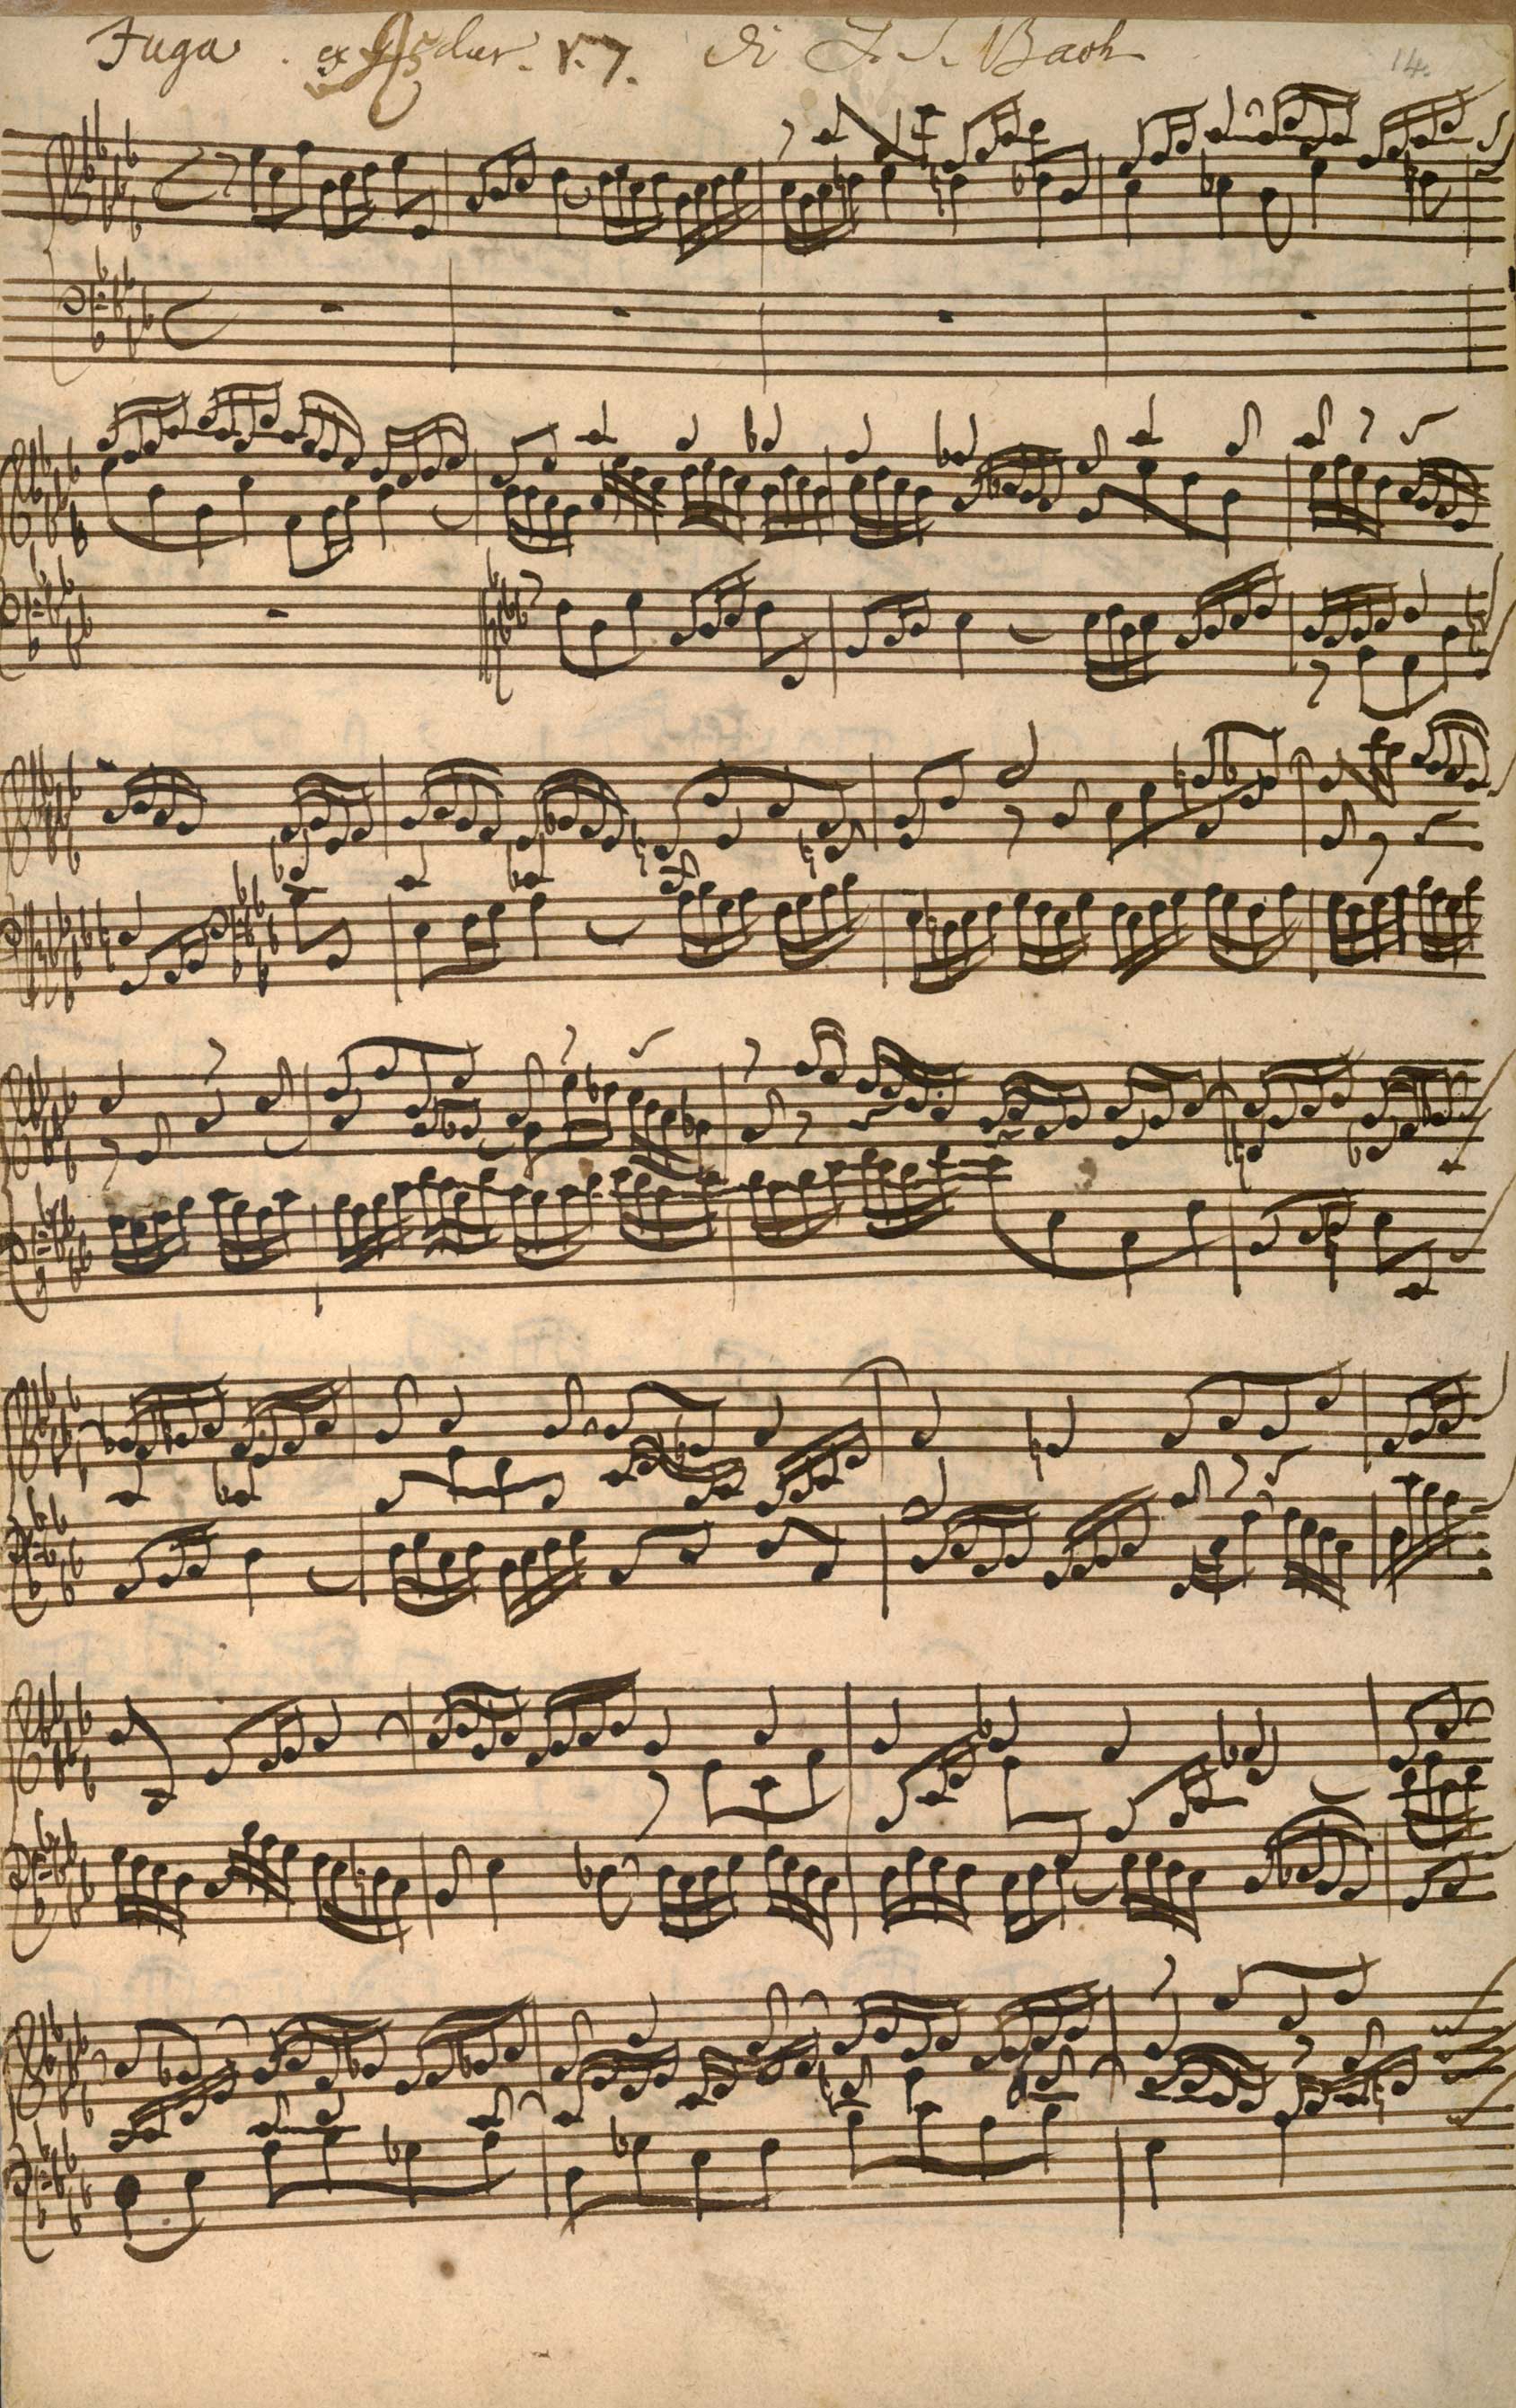 Fuga. ex Gis dur. V. 7. di J. S. Bach
14.